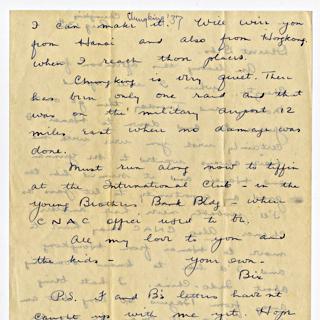 Chungking '37
I can make it. Will wire you
from Hanoi and also from Hongkong
when I reach those places.
Chungking is very quiet. There
has been only one raid and that
was on the military airport 12
miles east where no damage was
done.
Must run along now to tiffin
at the International Club - in the
Young Brothers' Bank Bldg - where
CNAC offices used to be.
All my love to you and
the kids - your own -
Bix
P.S. F and B's letters haven't
caught up with me yet. Hope